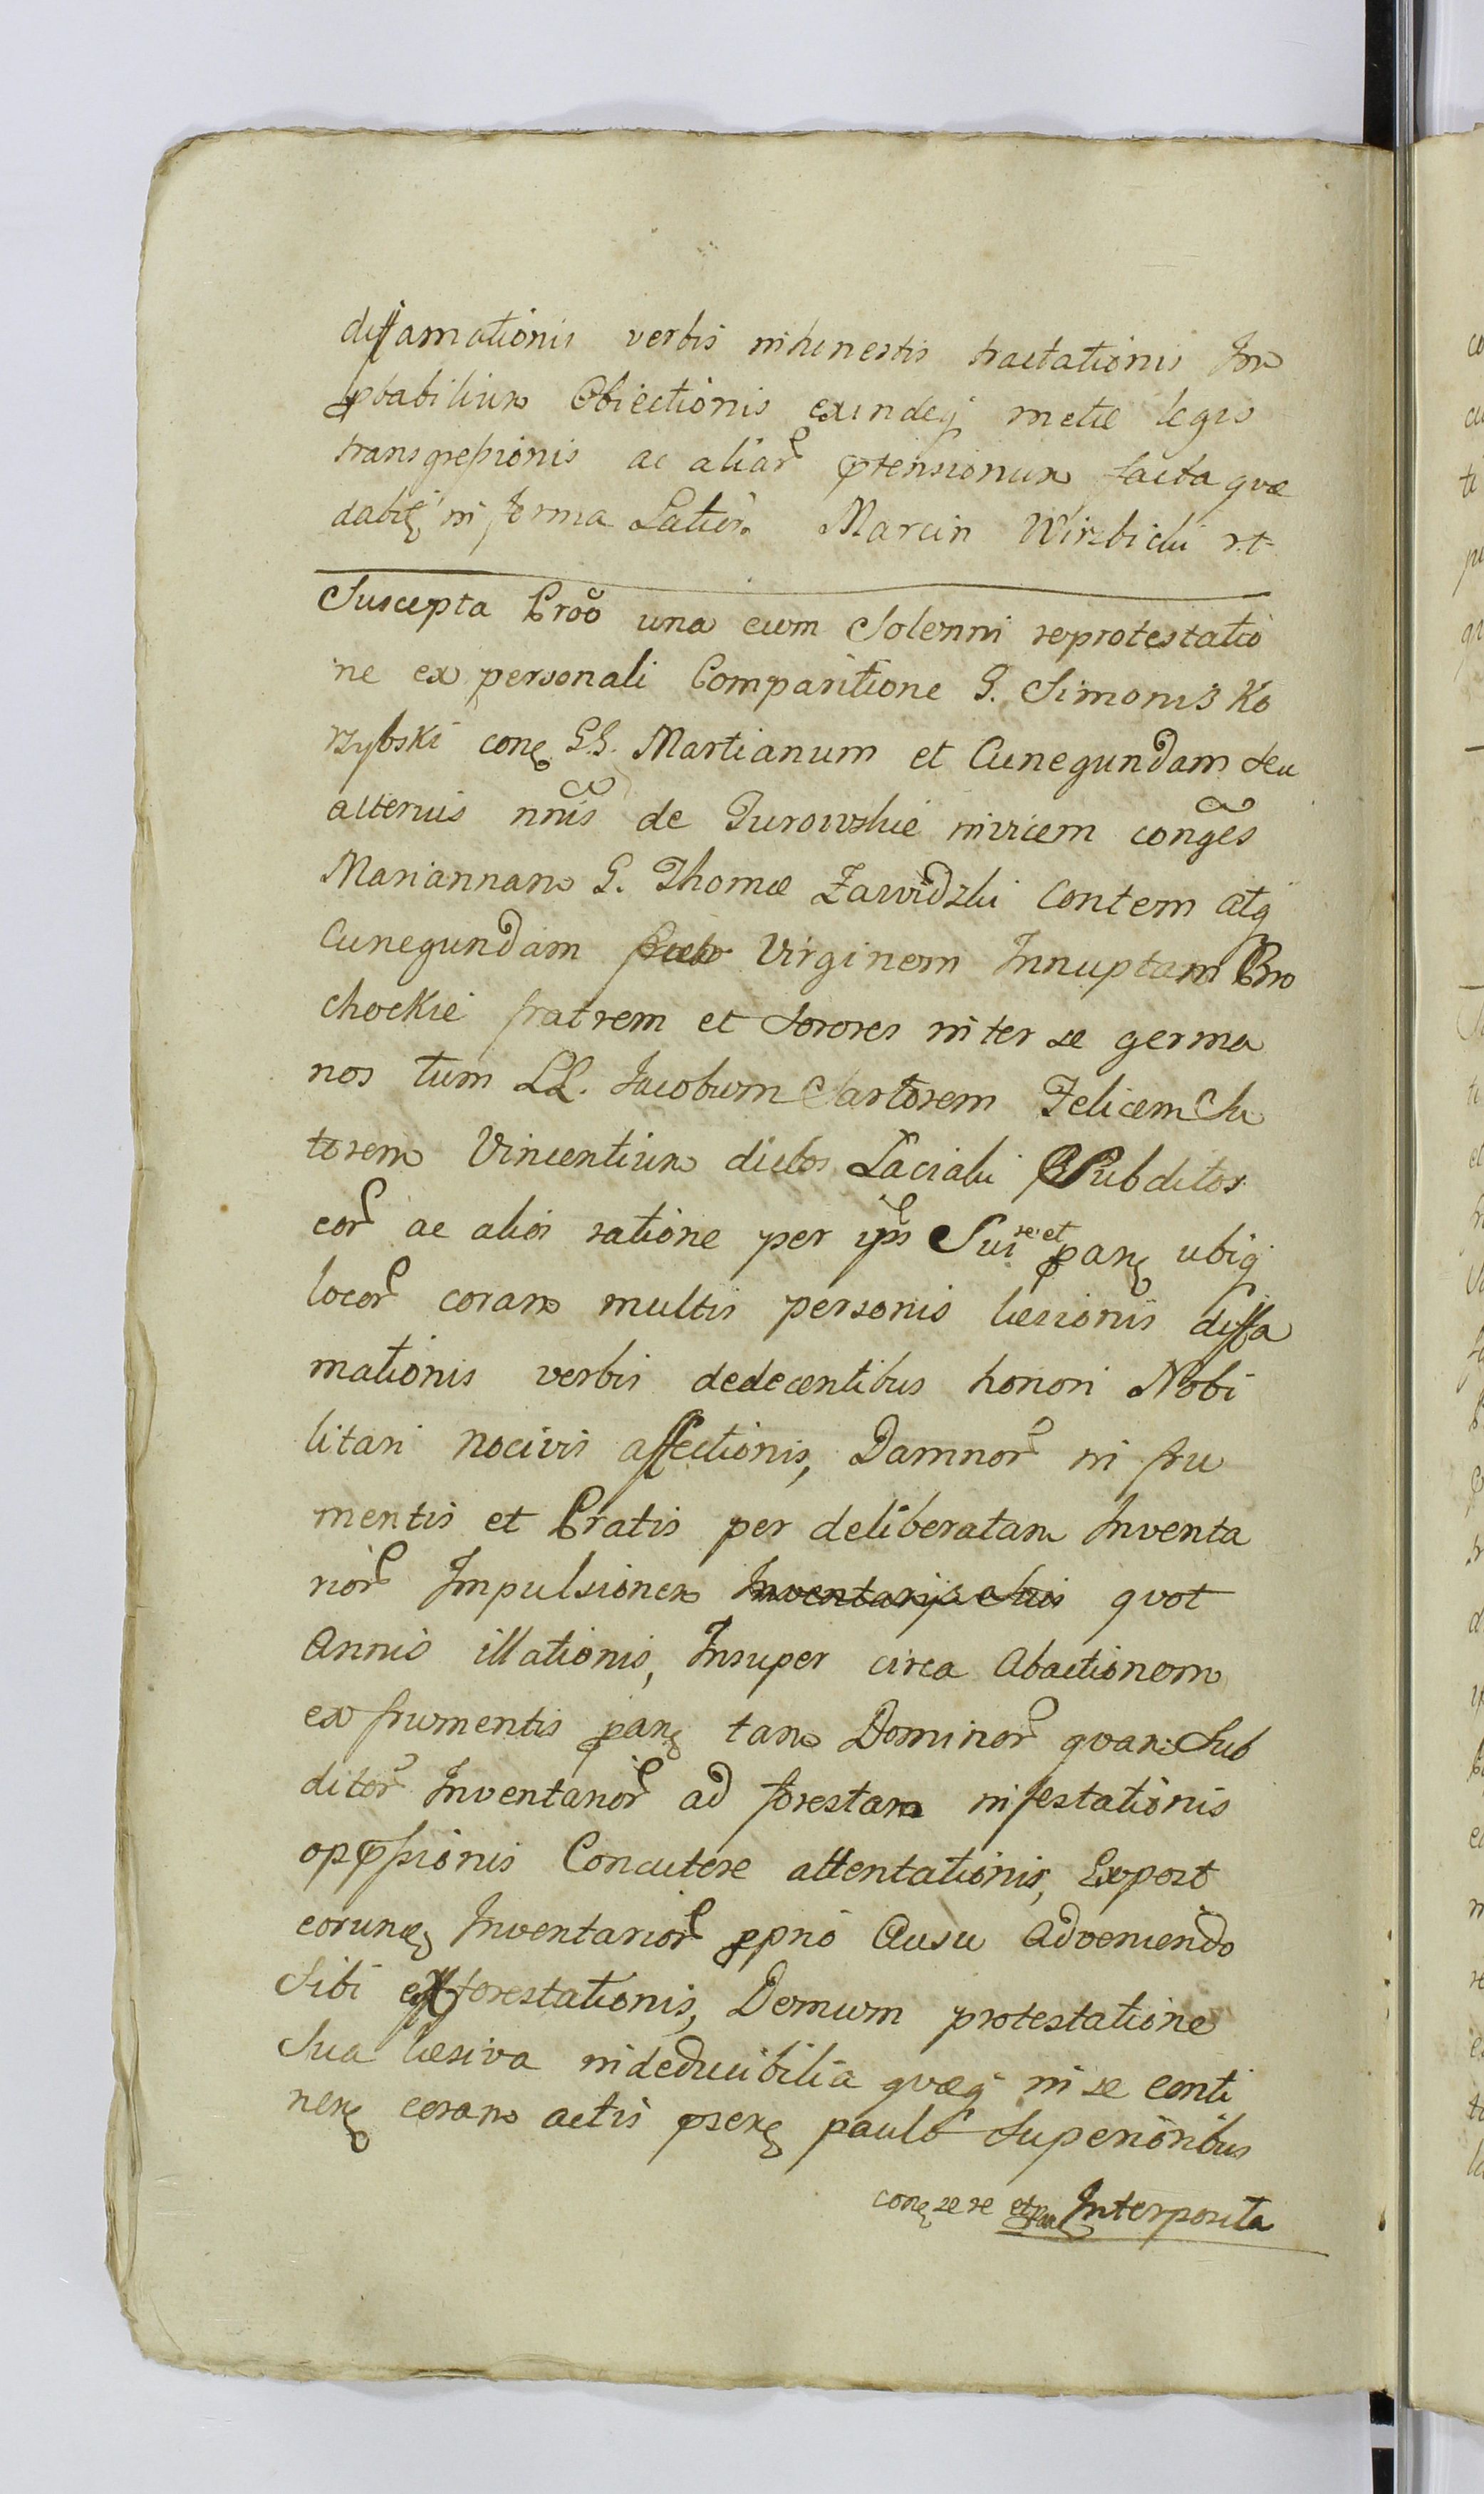 diffamationis verbis inhonestis tractationis Im
pbabilium Obiectionis exindeq metae legis
transgressionis ac aliar ptensionum facta quae
dabit in forma Latiori Marcin Wirzbicki rt
Suscepta Proo una cum Solenni reprotestatio
ne ex personali Comparitione G. Simonis Ko
rzybski con GG. Martianum et Cunegundam seu
alterius nnis de Turowskie invicem conges
Mariannam G. Thomae Zawidzki Contem atq
Cunegundam Virginem Innuptam Bro
chockie fratrem et Sorores inter se germa
nos tum LL. Jacobum Sartorem Felicem Su
torem Vincentium dictos Laciaki Subditos
eor ac alios ratione per ips Sui re et pan ubiq
locor coram multis personis laesionis diffa
mationis verbis dedecentibus honori Nobi
litari nocivis affectionis, Damnor in fru
mentis et Pratis per deliberatam Inventa
rior Impulsionem Inventarijs suis quot
Annis illationis, Insuper circa Abactionem
ex frumentis pan tam Dominor quam Sub
ditor Inventarior ad forestam infestationis
oppssionis Concutere attentationis, Expost
eorund Inventarior pprio Ausu Adveniendo
Sibi exforestationis, Demum protestatione
Sua laesiva indeducibilia quaeq in se conti
nen coram actis psen paulo Superioribus
con se re et pan Interposita